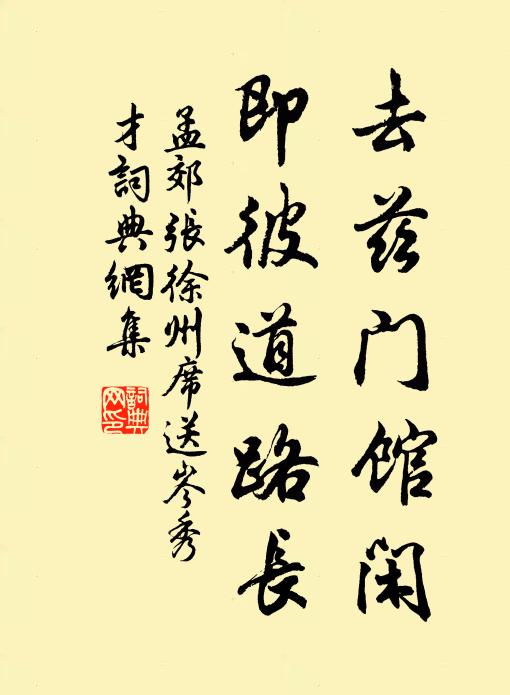 去兹门馆闲
即彼道路長
孟郊張徐州席送岑秀
才詞典網集
詞典
网印